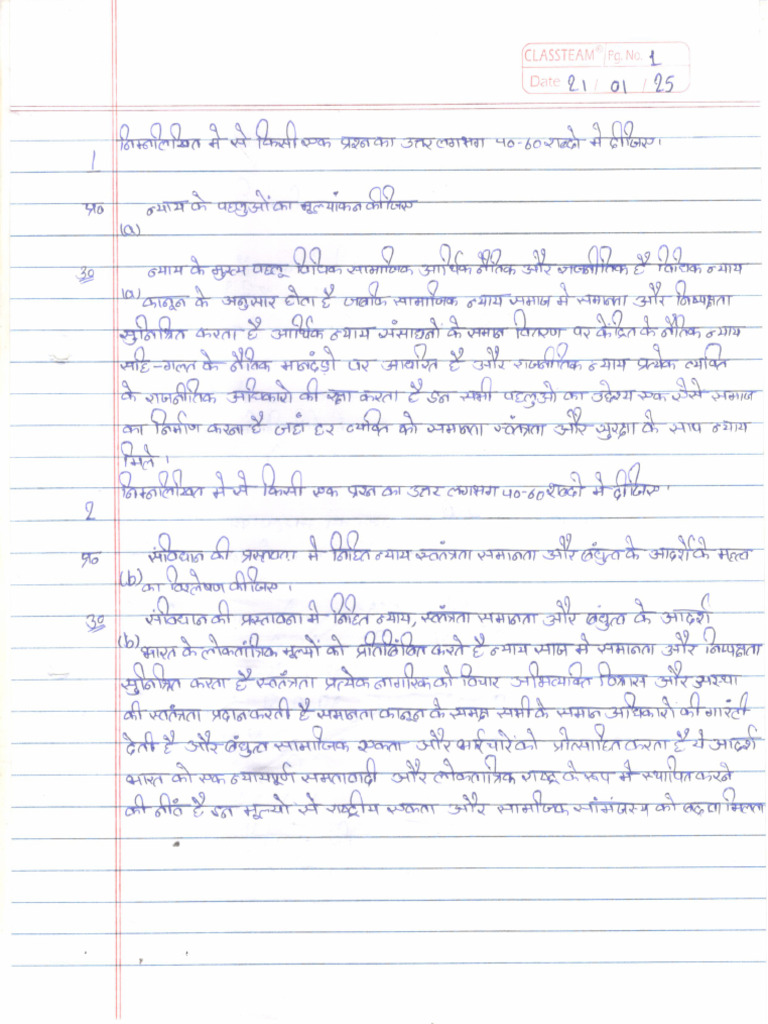 CLASSTEAM® Pg. No. 1
Date 21 / 01 / 25
निम्नलिखित मे से किसी एक प्रश्न का उतर लगभग 40-60 शब्दो मे दीजिए।
1
प्र० न्याय के पहलुओं का मूल्यांकन कीजिए
(a)
उ० न्याय के मुख्य पहलू विधिक सामाजिक आर्थिक नैतिक और राजनीतिक है विधिक न्याय
(a) कानून के अनुसार होता है जबकि सामाजिक न्याय समाज मे समानता और निष्पक्षता
सुनिश्रित करता है आर्थिक न्याय संसाधनों के समान वितरण पर केंद्रित के नैतिक न्याय
सहि-गलत के नैतिक मानदंडो पर आधारित है और राजनीतिक न्याय प्रत्येक व्यक्ति
के राजनीतिक अधिकारो की रक्षा करता है इन सभी पहलुओ का उद्देश्य एक ऐसे समाज
का निर्माण करना है जहां हर व्यक्ति को समानता स्वंत्रता और सुरक्षा के साथ न्याय
मिले।
निम्नलिखित मे से किसी एक प्रश्न का उतर लगभग 40-60 शब्दो मे दीजिए।
2
प्र० संविधान की प्रस्तावता मे निहित न्याय स्वतंत्रता समानता और बंधुत्व के आदर्शे के महत्व
(b) का विश्लेषण कीजिए।
उ० संविधान की प्रस्तावना मे निहित न्याय, स्वतंत्रता समानता और बंधुत्व के आदर्श
(b) भारत के लोकतांत्रिक मूल्यों को प्रतिबिंबित करते है न्याय समाज मे समानता और निष्पक्षता
सुनिश्रित करता है स्वतंत्रता प्रत्येक नागरिक को विचार अभिव्यक्ति विश्वास और
की स्वतंत्रता प्रदान करती है समानता कानून के समक्ष सभी के समान अधिकारो की गारंटी
देती है और बंधुत्व सामाजिक एकता और भाईचारे को प्रोत्साहित करता है ये आदर्श
भारत को एक न्यायपूर्ण समतावादी और लोकतांत्रिक राष्ट्र के रूप मे स्थापित करने
की नींव है इन मूल्यो से राष्ट्रीय एकता और सामाजिक सांमंजस्य को बढ़ावा मिलता